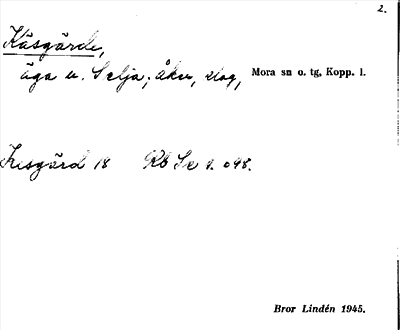 2.
Käsgärde,
äga u. Selja; åker, slog, Mora sn o. tg, Kopp. l.
Kesgärd 18 Rb Se 1. 098.
Bror Lindén 1945.